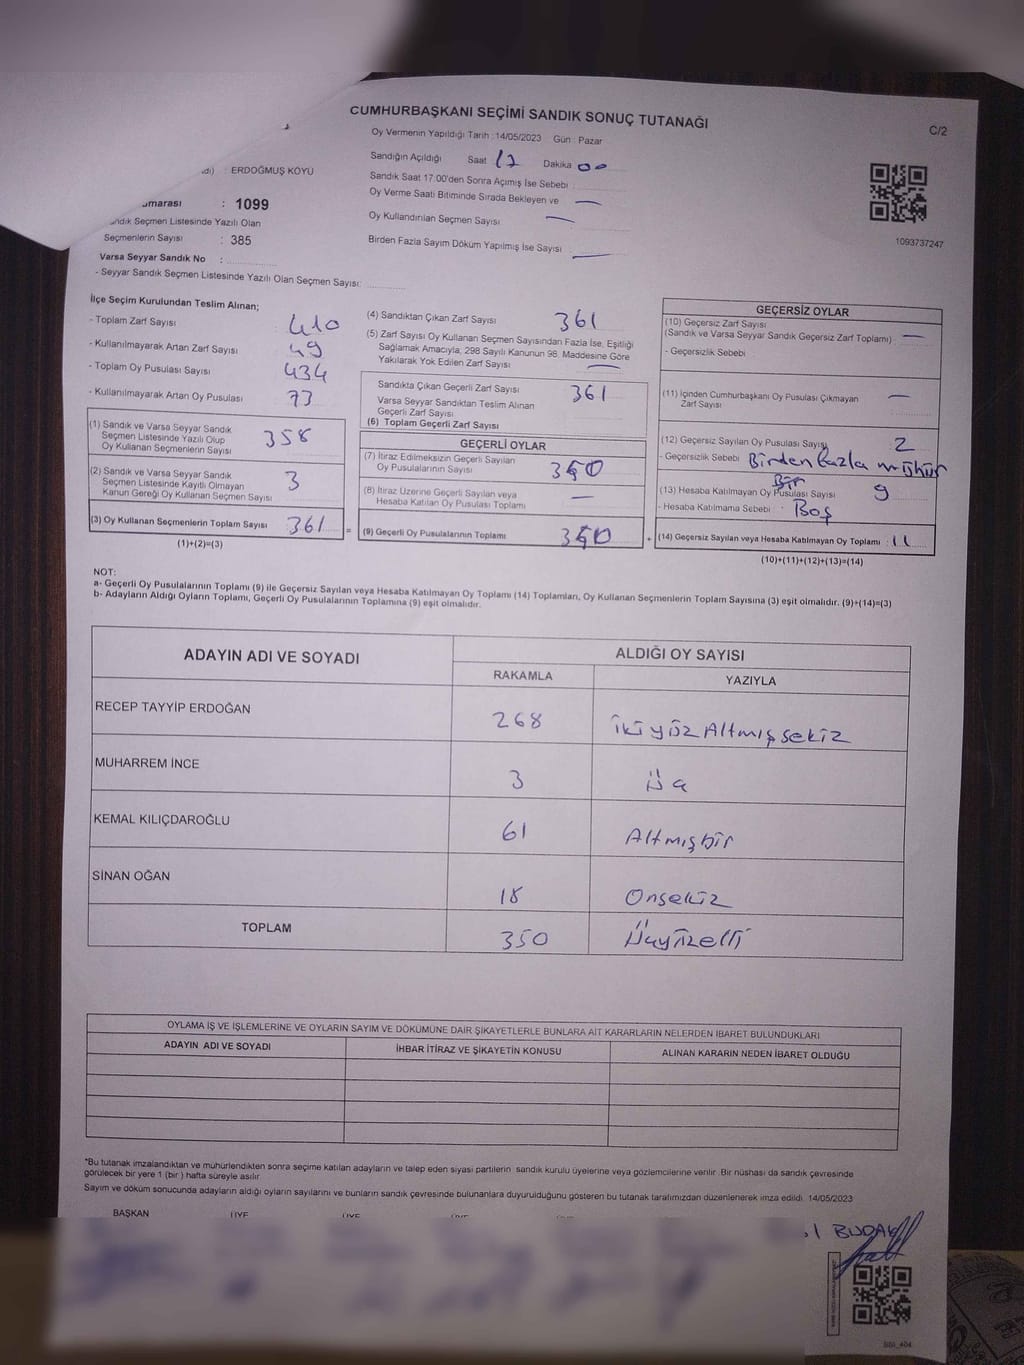 CUMHURBAŞKANI SEÇİMİ SANDIK SONUÇ TUTANAĞI
C/2
Oy Vermenin Yapıldığı Tarih : 14/05/2023 Gün : Pazar
Sandığın Açıldığı Saat 17 Dakika 00
Sandık Saat 17:00'den Sonra Açımış İse Sebebi :
Oy Verme Saati Bitiminde Sırada Bekleyen ve —
Oy Kullandırılan Seçmen Sayısı —
Birden Fazla Sayım Döküm Yapılmış İse Sayısı : —
: ERDOĞMUŞ KÖYÜ
umarası : 1099
Sandık Seçmen Listesinde Yazılı Olan
Seçmenlerin Sayısı : 385
Varsa Seyyar Sandık No :
- Seyyar Sandık Seçmen Listesinde Yazılı Olan Seçmen Sayısı:
1093737247
İlçe Seçim Kurulundan Teslim Alınan;
- Toplam Zarf Sayısı 410
- Kullanılmayarak Artan Zarf Sayısı 49
- Toplam Oy Pusulası Sayısı 434
- Kullanılmayarak Artan Oy Pusulası 73
(1) Sandık ve Varsa Seyyar Sandık
Seçmen Listesinde Yazılı Olup
Oy Kullanan Seçmenlerin Sayısı 358
(2) Sandık ve Varsa Seyyar Sandık
Seçmen Listesinde Kayıtlı Olmayan
Kanun Gereği Oy Kullanan Seçmen Sayısı 3
(3) Oy Kullanan Seçmenlerin Toplam Sayısı 361 =
(1)+(2)=(3)
(4) Sandıktan Çıkan Zarf Sayısı 361
(5) Zarf Sayısı Oy Kullanan Seçmen Sayısından Fazla İse, Eşitliği
Sağlamak Amacıyla, 298 Sayılı Kanunun 98. Maddesine Göre
Yakılarak Yok Edilen Zarf Sayısı —
Sandıkta Çıkan Geçerli Zarf Sayısı 361
Varsa Seyyar Sandıktan Teslim Alınan
Geçerli Zarf Sayısı
(6) Toplam Geçerli Zarf Sayısı
GEÇERLİ OYLAR
(7) İtiraz Edilmeksizin Geçerli Sayılan
Oy Pusulalarının Sayısı 350
(8) İtiraz Üzerine Geçerli Sayılan veya
Hesaba Katılan Oy Pusulası Toplamı —
(9) Geçerli Oy Pusulalarının Toplamı 350 +
GEÇERSİZ OYLAR
(10) Geçersiz Zarf Sayısı
(Sandık ve Varsa Seyyar Sandık Geçersiz Zarf Toplamı) —
- Geçersizlik Sebebi
(11) İçinden Cumhurbaşkanı Oy Pusulası Çıkmayan
Zarf Sayısı —
(12) Geçersiz Sayılan Oy Pusulası Sayısı 2
- Geçersizlik Sebebi Birden fazla mühür
Bir
(13) Hesaba Katılmayan Oy Pusulası Sayısı 9
- Hesaba Katılmama Sebebi : Boş
(14) Geçersiz Sayılan veya Hesaba Katılmayan Oy Toplamı : 11
(10)+(11)+(12)+(13)=(14)
NOT:
a- Geçerli Oy Pusulalarının Toplamı (9) ile Geçersiz Sayılan veya Hesaba Katılmayan Oy Toplamı (14) Toplamları, Oy Kullanan Seçmenlerin Toplam Sayısına (3) eşit olmalıdır. (9)+(14)=(3)
b- Adayların Aldığı Oyların Toplamı, Geçerli Oy Pusulalarının Toplamına (9) eşit olmalıdır.
ADAYIN ADI VE SOYADI
ALDIĞI OY SAYISI
RAKAMLA YAZIYLA
RECEP TAYYİP ERDOĞAN 268 İkiyüz Altmışsekiz
MUHARREM İNCE 3 Üç
KEMAL KILIÇDAROĞLU 61 Altmışbir
SİNAN OĞAN 18 Onsekiz
TOPLAM 350 Üçyüzelli
OYLAMA İŞ VE İŞLEMLERİNE VE OYLARIN SAYIM VE DÖKÜMÜNE DAİR ŞİKAYETLERLE BUNLARA AİT KARARLARIN NELERDEN İBARET BULUNDUKLARI
ADAYIN ADI VE SOYADI İHBAR İTİRAZ VE ŞİKAYETİN KONUSU ALINAN KARARIN NEDEN İBARET OLDUĞU
*Bu tutanak imzalandıktan ve mühürlendikten sonra seçime katılan adayların ve talep eden siyasi partilerin sandık kurulu üyelerine veya gözlemcilerine verilir. Bir nüshası da sandık çevresinde
görülecek bir yere 1 (bir) hafta süreyle asılır.
Sayım ve döküm sonucunda adayların aldığı oyların sayılarını ve bunların sandık çevresinde bulunanlara duyurulduğunu gösteren bu tutanak tarafımızdan düzenlenerek imza edildi. 14/05/2023
BAŞKAN ÜYE ÜYE ÜYE
BUDAK